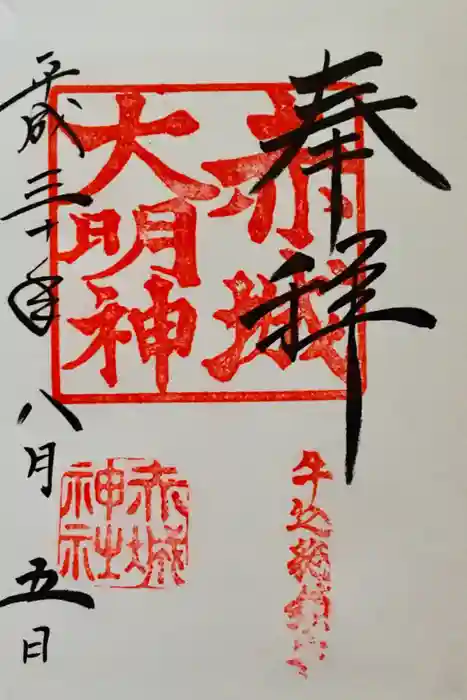 奉拝
赤城
大明神
牛込総鎮守
赤城
神社
平成三十年八月五日